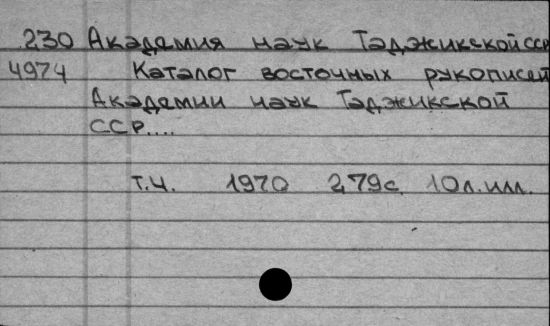 230 Академия наук Таджикской ССР
4974 Каталог восточных рукописей
Академии наук Таджикской
ССР....
т.4. 1970 279с. 10л.илл.